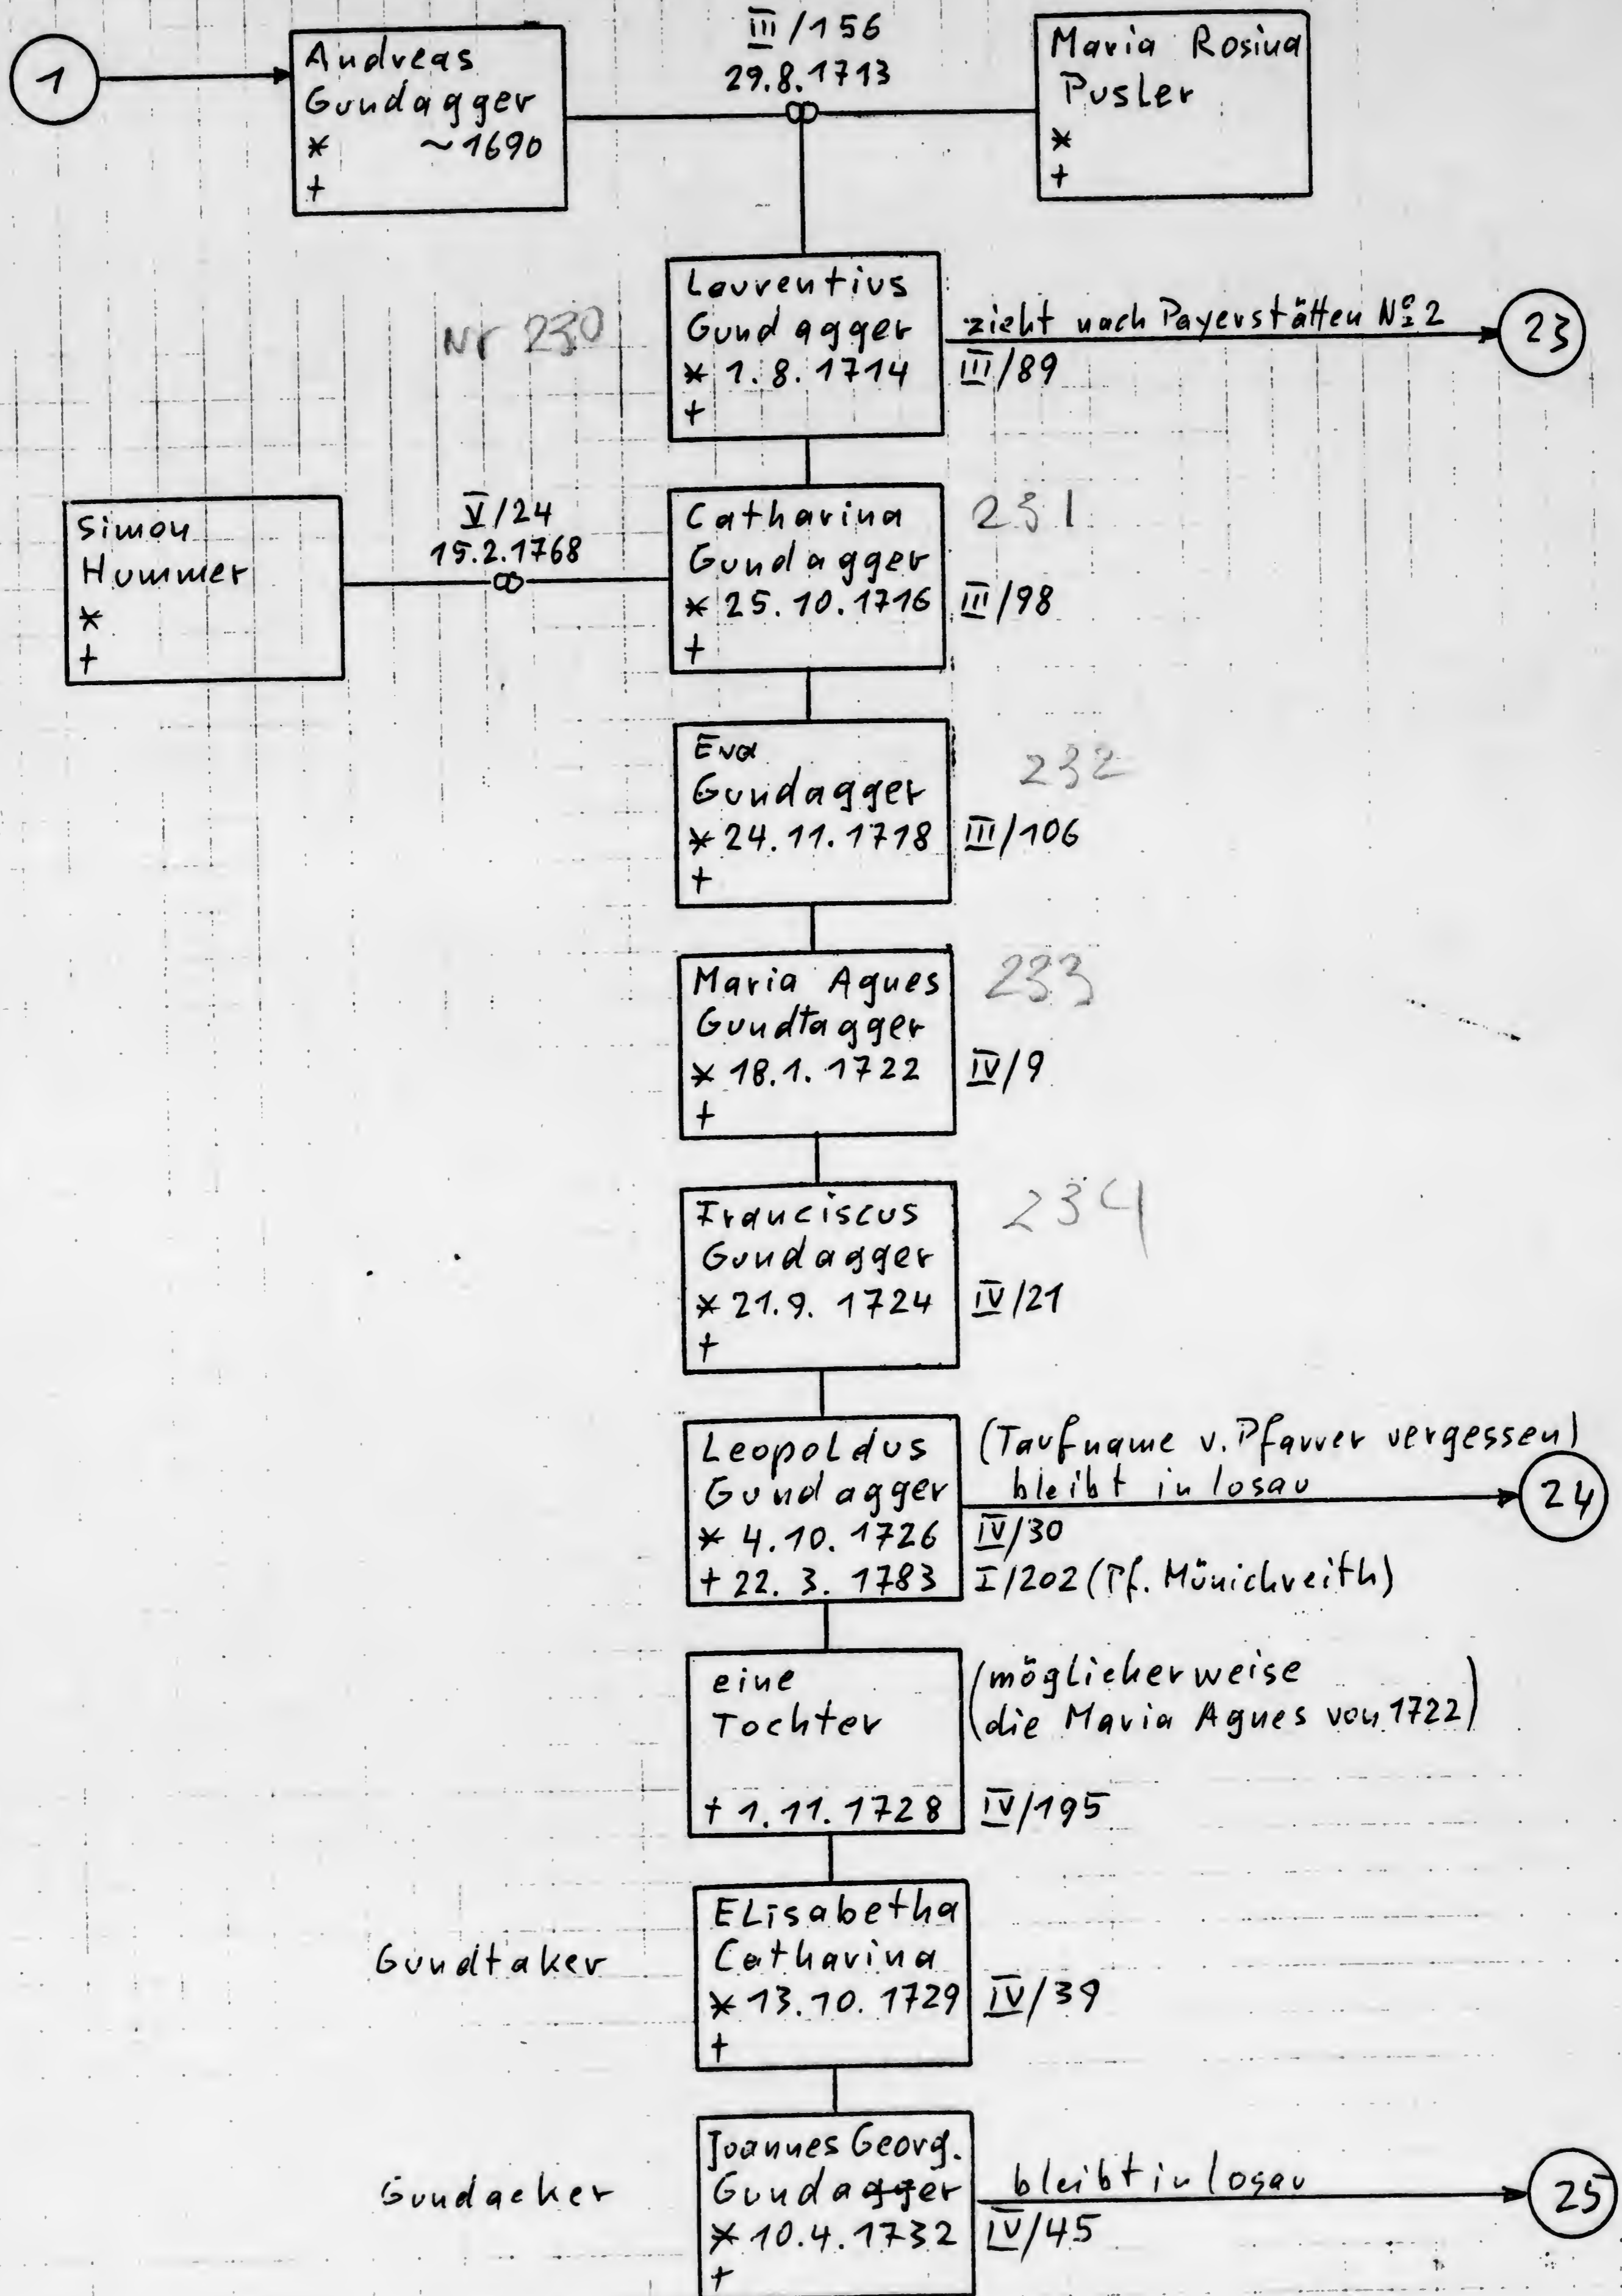 1
Andreas
Gundagger
* ~1690
+
III/156
29.8.1713
Maria Rosina
Pusler
*
+
Nr 230
Laurentius
Gundagger
* 1.8.1714
+
zieht nach Payerstätten Nº 2
III/89
23
Simon
Hummer
*
+
V/24
15.2.1768
Catharina
Gundagger
* 25.10.1716
+
231
III/98
Eva
Gundagger
* 24.11.1718
+
232
III/106
Maria Agnes
Gundtagger
* 18.1.1722
+
233
IV/9
Franciscus
Gundagger
* 21.9.1724
+
234
IV/21
Leopoldus
Gundagger
* 4.10.1726
+ 22.3.1783
(Taufname v. Pfarrer vergessen)
bleibt in Losau
24
IV/30
I/202 (Pf. Münichreith)
eine
Tochter
+ 1.11.1728
(möglicherweise
die Maria Agnes von 1722)
IV/195
Gundtaker
Elisabetha
Catharina
* 13.10.1729
+
IV/39
Gundacker
Joannes Georg.
Gundagger
* 10.4.1732
+
bleibt in Losau
IV/45
25